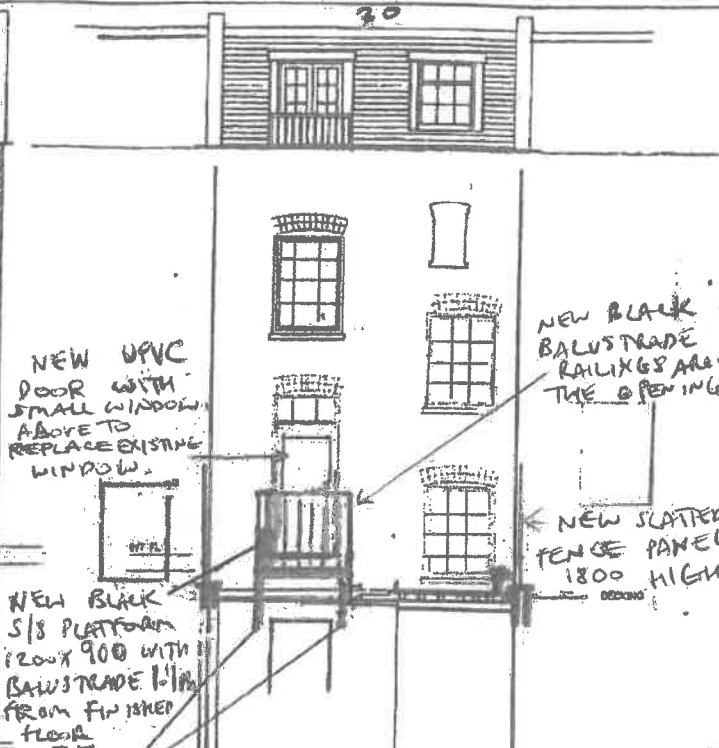 20
NEW UPVC
DOOR WITH
SMALL WINDOW
ABOVE TO
REPLACE EXISTING
WINDOW.
NEW BLACK
BALUSTRADE
RAILINGS
THE OPENING
NEW SLATTED
FENCE PANEL
1800 HIGH
DECKING
NEW BLACK
S/S PLATFORM
1200 X 900 WITH
BALUSTRADE 1.1M
FROM FINISHED
FLOOR